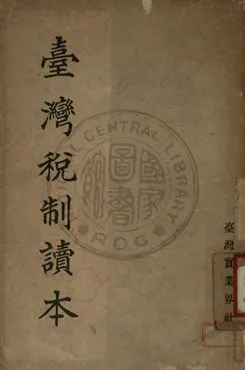 臺灣稅制讀本
臺灣實業界社
CENTRAL LIBRARY
國家圖書館
R.O.C